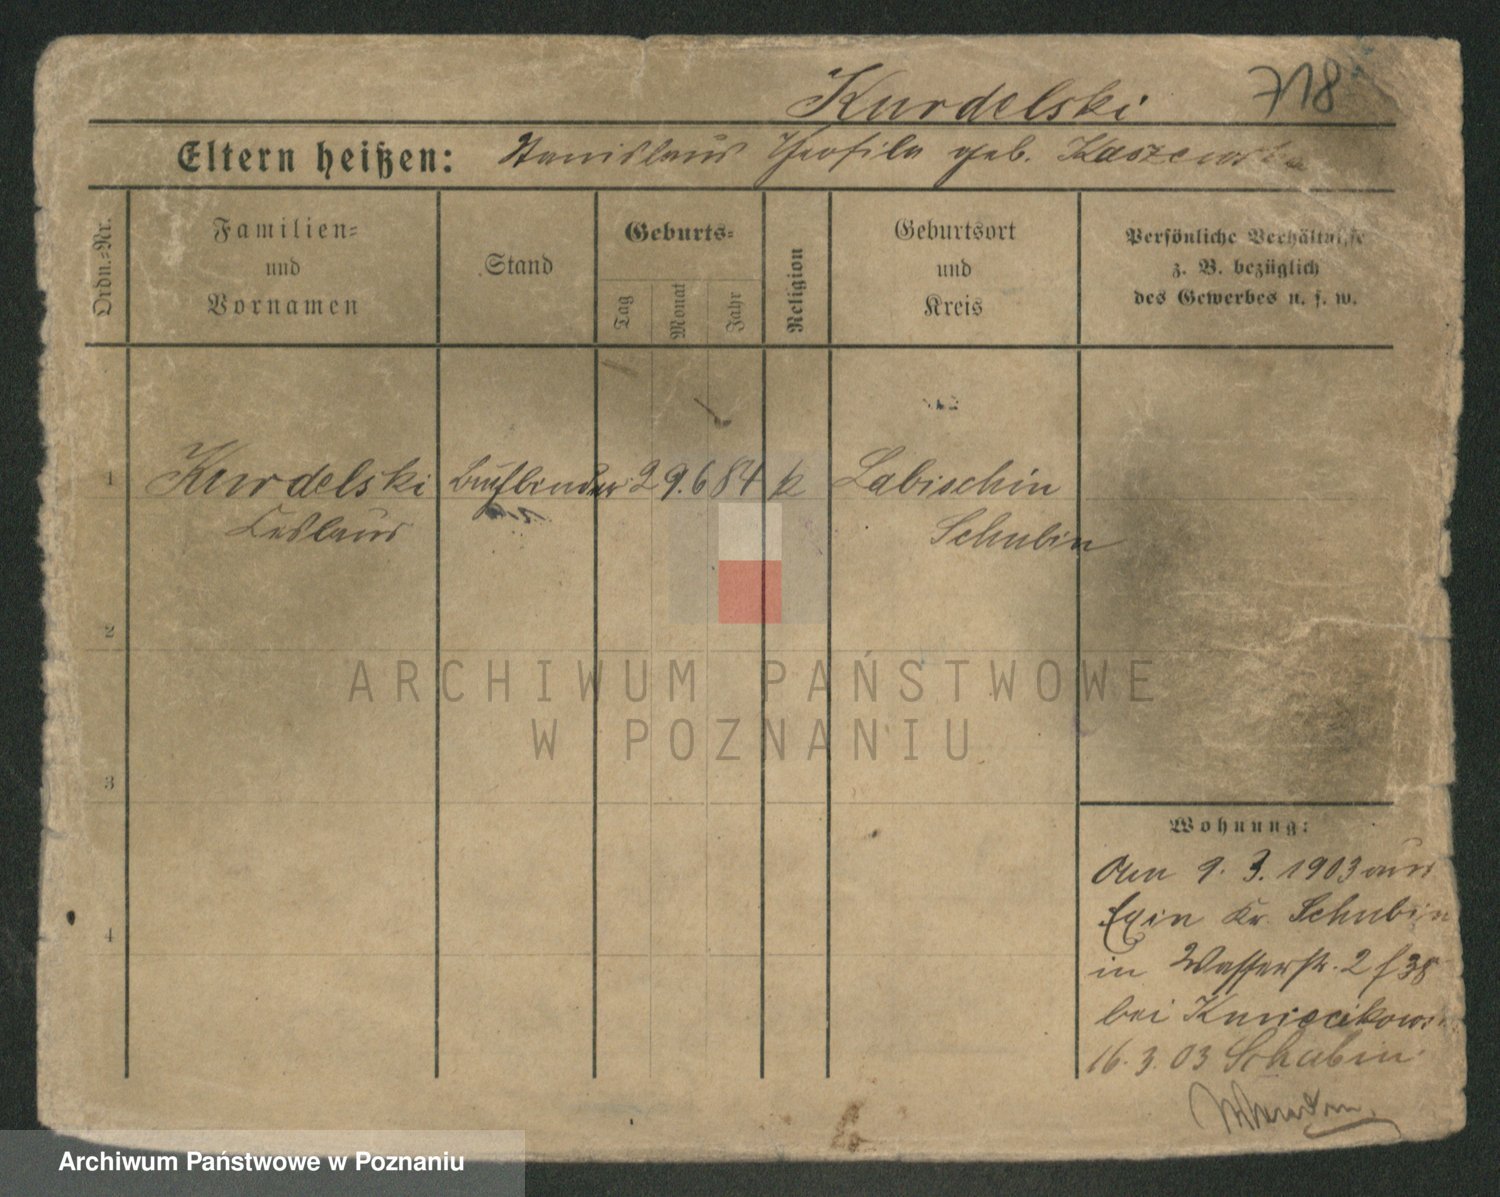 Kurdelski 718
Eltern heißen: Stanislaus Theofila geb.
Ordn.-Nr.
Familien-
und
Vornamen
Stand
Geburts-
Tag
Monat
Jahr
Religion
Geburtsort
und
Kreis
Persönliche Verhältnisse
z. B. bezüglich
des Gewerbes u. s. w.
1 Kurdelski Buchbinder 29. 6 84 k Labischin
Ceslaus Schubin
2
3
4
Wohnung:
Den 9. 3. 1903 aus
Exin Kr. Schubin
in Wasserstr. 2
bei
16. 3. 03 Schubin
ARCHIWUM PAŃSTWOWE
W POZNANIU
Archiwum Państwowe w Poznaniu